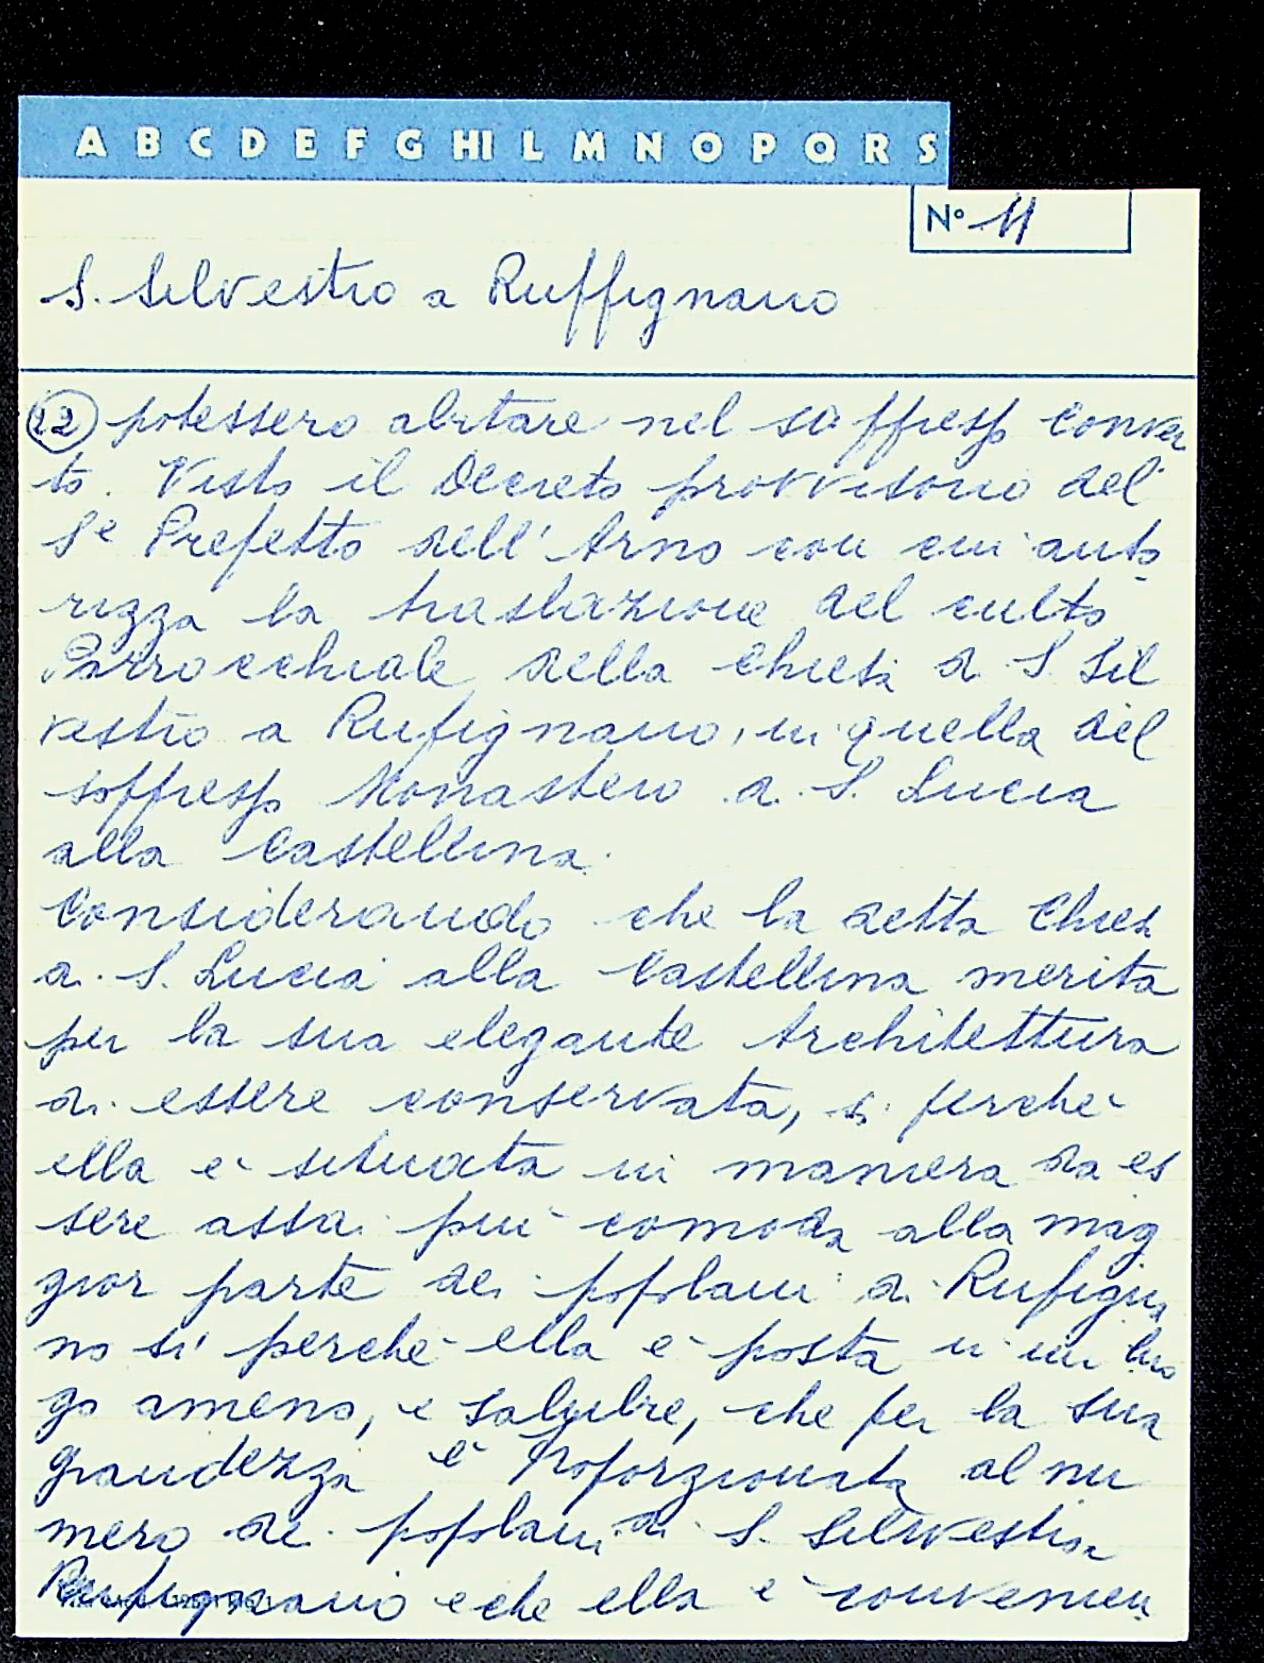 A B C D E F G HI L M N O P Q R S
N° 11
S. Silvestro a Ruffignano
12 potessero abitare nel soppresso Conven
to. Visto il Decreto provvisorio del
Sr Prefetto dell'Arno con cui auto
rizza la traslazione del culto
Parrocchiale della Chiesa di S. Sil
vestro a Rufignano, in quella del
soppresso Monastero di S. Lucia
alla Castellina.
Considerando che la detta Chiesa
di S. Lucia alla Castellina merita
per la sua elegante Architettura
di essere conservata, si perchè
ella è situata in maniera da es
sere assai più comoda alla mag
gior parte dei popolani di Rufigna
no sì perchè ella è posta in un luo
go ameno, e salubre, che per la sua
grandezza è proporzionata al nu
mero dei popolani di S. Silvestro a
Rufignano e che ella è convenien